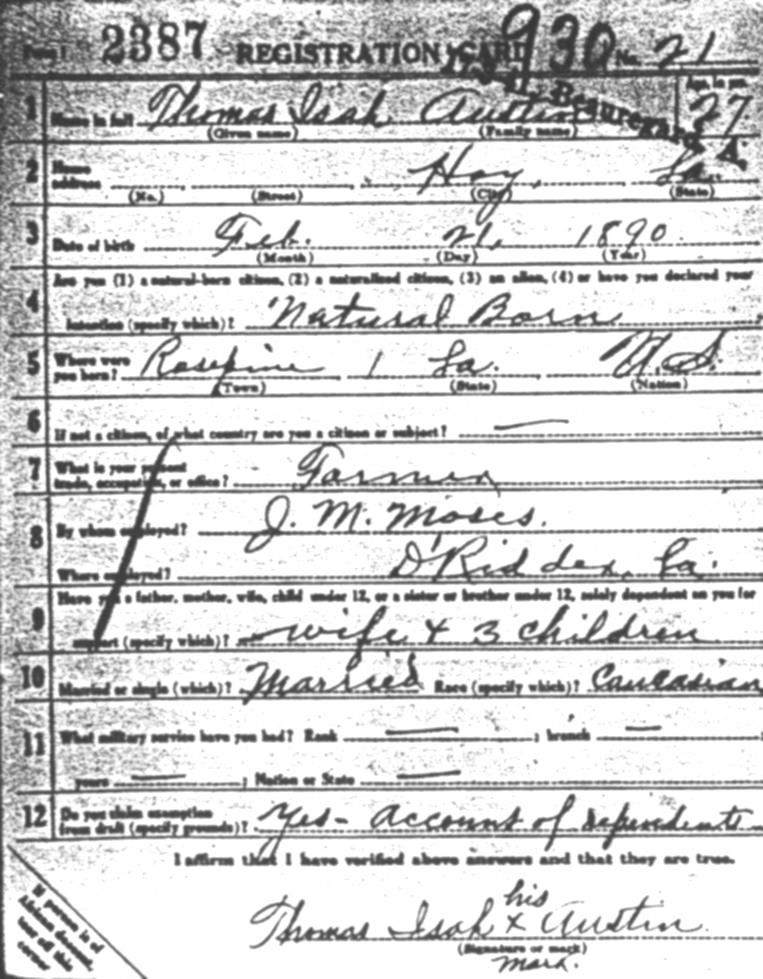 Form 1 2387 REGISTRATION CARD 930 No. 21
1 Name in full Thomas Isah Austin Age, in yrs. 27
(Given name) (Family name)
2 Home address Hoy, La.
(No.) (Street) (City) (State)
3 Date of birth Feb. 21, 1890
(Month) (Day) (Year)
Are you (1) a natural-born citizen, (2) a naturalized citizen, (3) an alien, (4) or have you declared your
4 intention (specify which)? Natural Born
5 Where were you born? Rosepine La. U.S.
(Town) (State) (Nation)
6 If not a citizen, of what country are you a citizen or subject? —
7 What is your present trade, occupation, or office? Farmer
8 By whom employed? J. M. Moses.
Where employed? D'Ridder, La.
Have you a father, mother, wife, child under 12, or a sister or brother under 12, solely dependent on you for
9 support (specify which)? wife & 3 children
10 Married or single (which)? Married Race (specify which)? Caucasian
11 What military service have you had? Rank — ; branch — ;
years — ; Nation or State —
12 Do you claim exemption from draft (specify grounds)? Yes - account of dependents
I affirm that I have verified above answers and that they are true.
his
Thomas Isah x Austin
(Signature or mark)
mark.
If person is of
African descent,
tear off this
corner